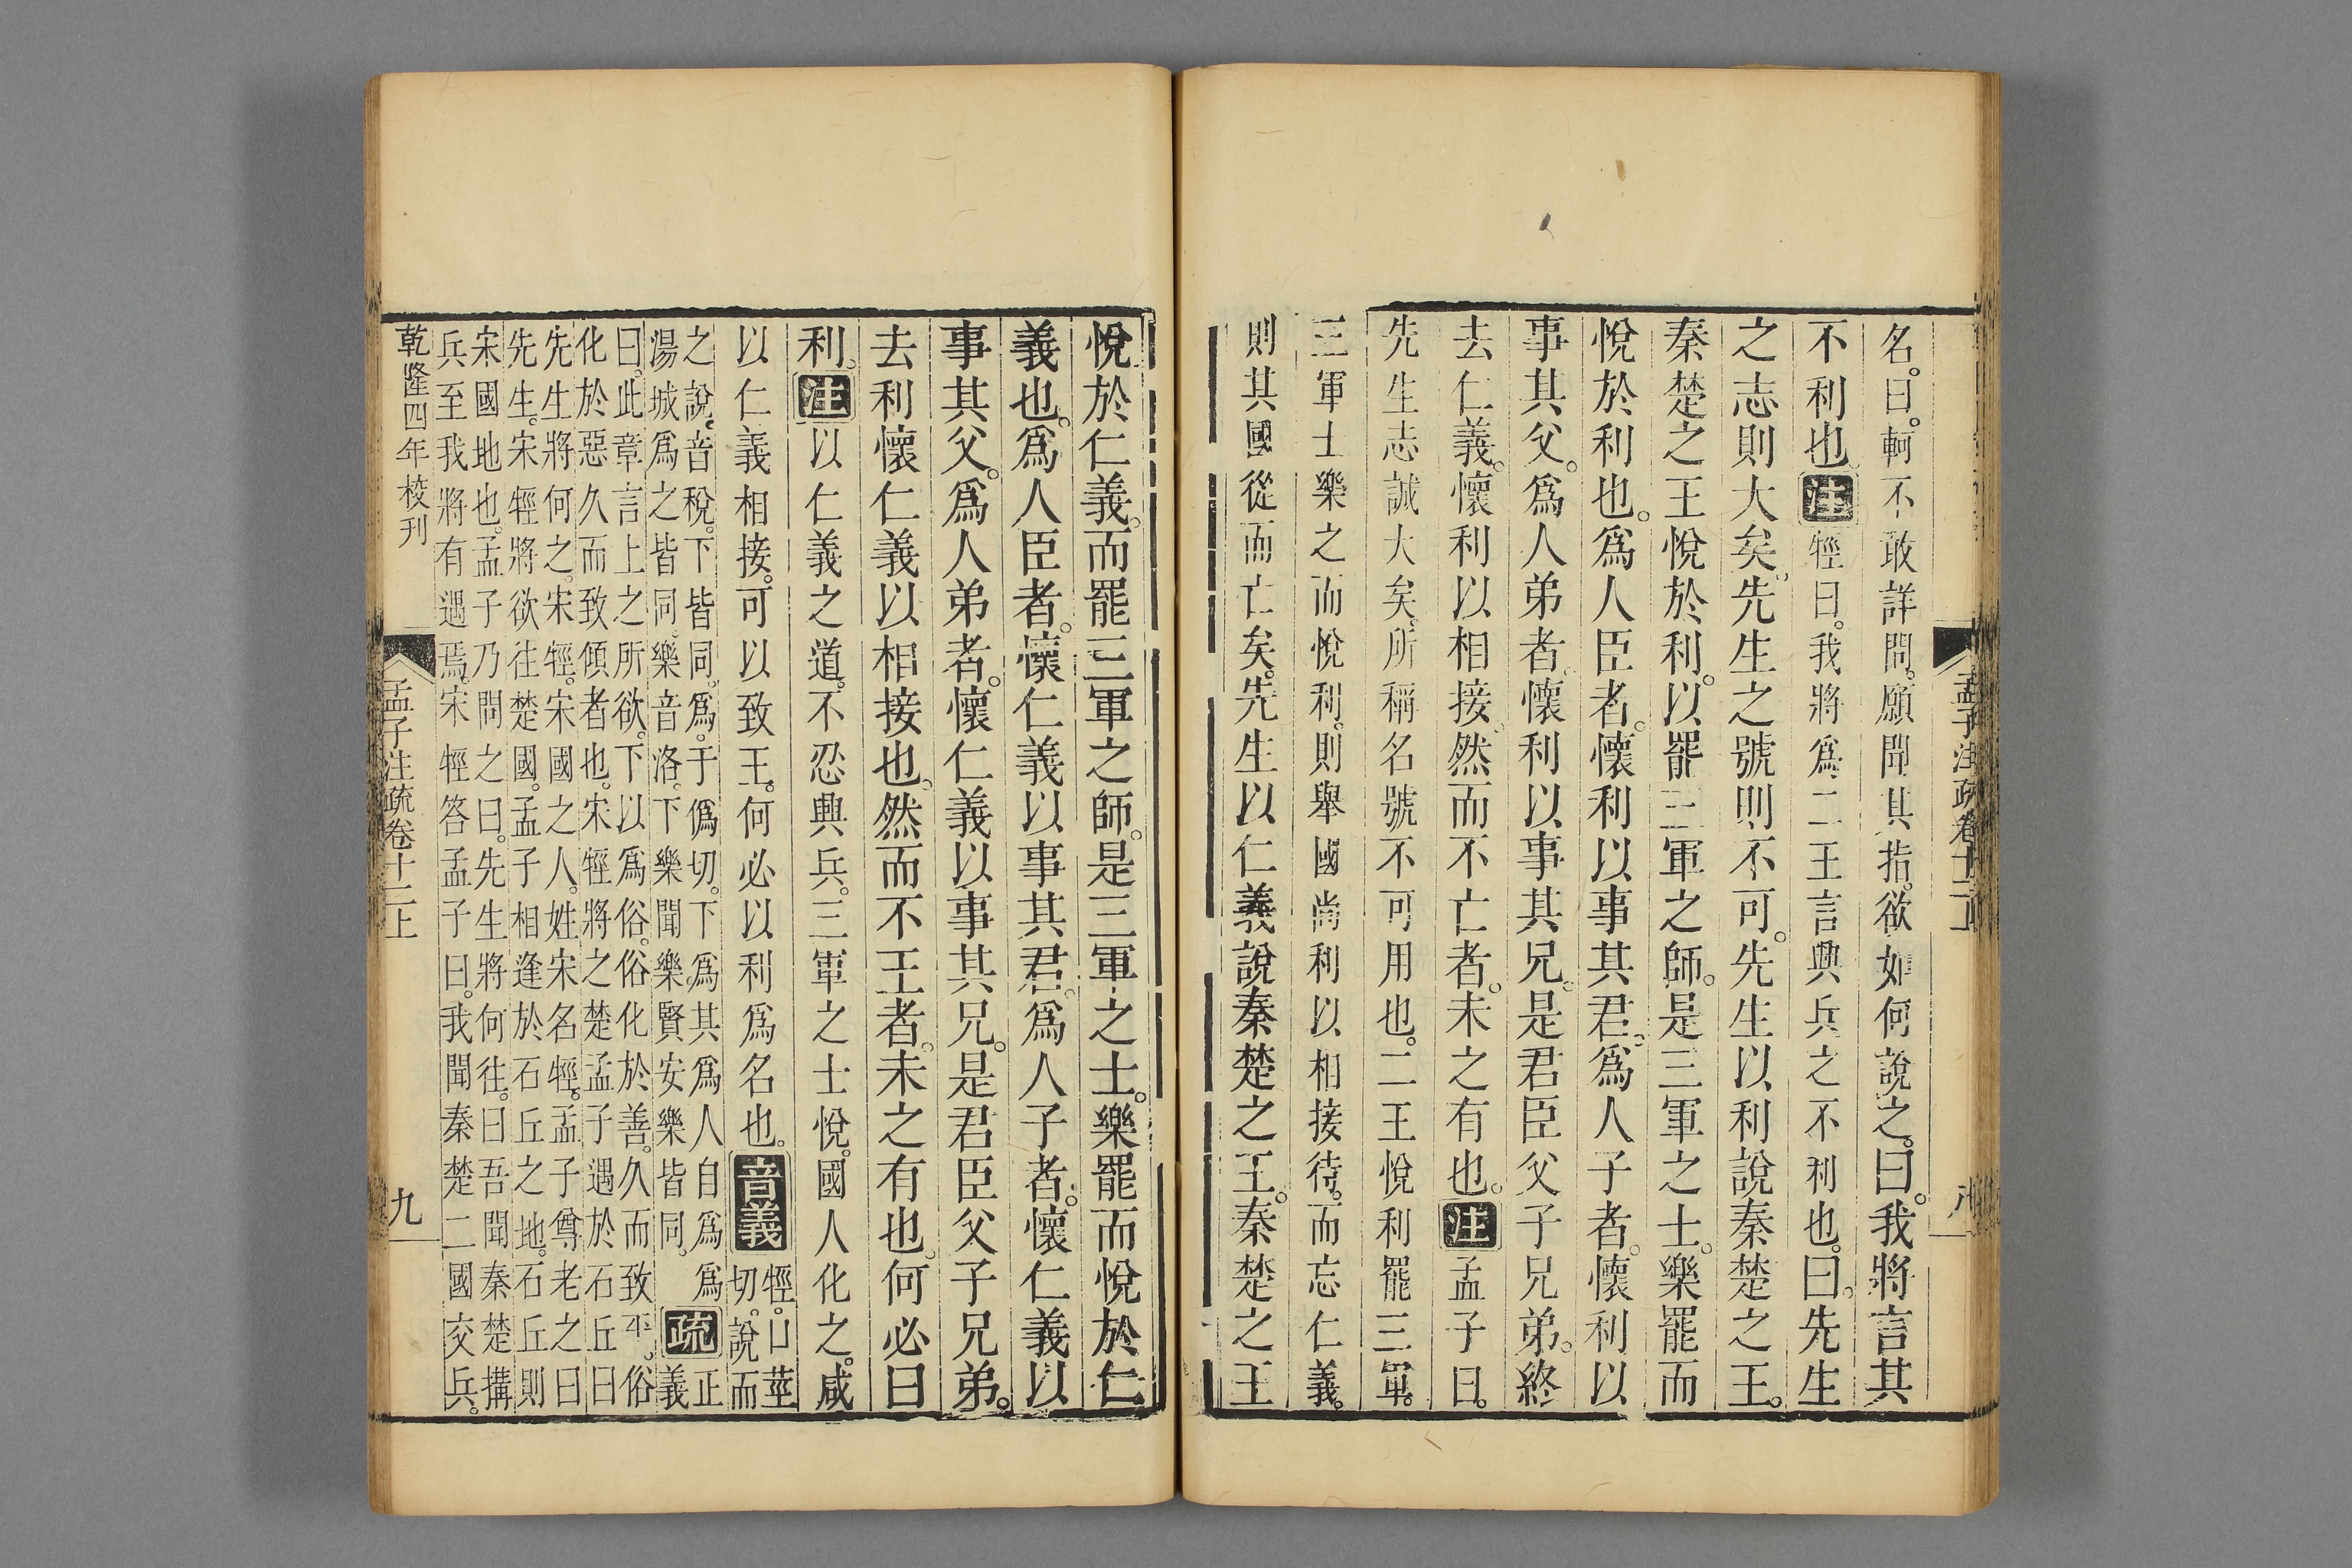 孟子注疏卷十二上
名。曰。軻不敢詳問。願聞其指。欲如何說之。曰。我將言其
不利也。注牼曰。我將爲二王言興兵之不利也。曰。先生
之志則大矣。先生之號則不可。先生以利說秦楚之王。
秦楚之王悅於利。以罷三軍之師。是三軍之士。樂罷而
悅於利也。爲人臣者。懷利以事其君。爲人子者。懷利以
事其父。爲人弟者。懷利以事其兄。是君臣父子兄弟。終
去仁義。懷利以相接。然而不亡者。未之有也。注孟子曰。
先生志誠大矣。所稱名號不可用也。二王悅利罷三軍。
三軍士樂之而悅利。則舉國尚利以相接待。而忘仁義。
則其國從而亡矣。先生以仁義說秦楚之王。秦楚之王
悅於仁義。而罷三軍之師。是三軍之士。樂罷而悅於仁
義也。爲人臣者。懷仁義以事其君。爲人子者。懷仁義以
事其父。爲人弟者。懷仁義以事其兄。是君臣父子兄弟。
去利懷仁義以相接也。然而不王者。未之有也。何必曰
利。注以仁義之道。不忍興兵。三軍之士悅。國人化之。咸
以仁義相接。可以致王。何必以利爲名也。音義牼。口莖
切。說而
之說。音稅。下皆同。爲。于僞切。下爲其爲人自爲爲
湯城爲之皆同。樂音洛。下樂聞樂賢安樂皆同。疏正
義
曰。此章言上之所欲。下以爲俗。俗化於善。久而致平。俗
化於惡久而致傾者也。宋牼將之楚孟子遇於石丘曰
先生將何之。宋牼。宋國之人。姓宋名牼。孟子尊老之曰
先生。宋牼將欲往楚國。孟子相逢於石丘之地。石丘則
宋國地也。孟子乃問之曰。先生將何往。曰吾聞秦楚搆
兵至我將有遇焉。宋牼答孟子曰。我聞秦楚二國交兵。
乾隆四年校刊
孟子注疏卷十二上
九